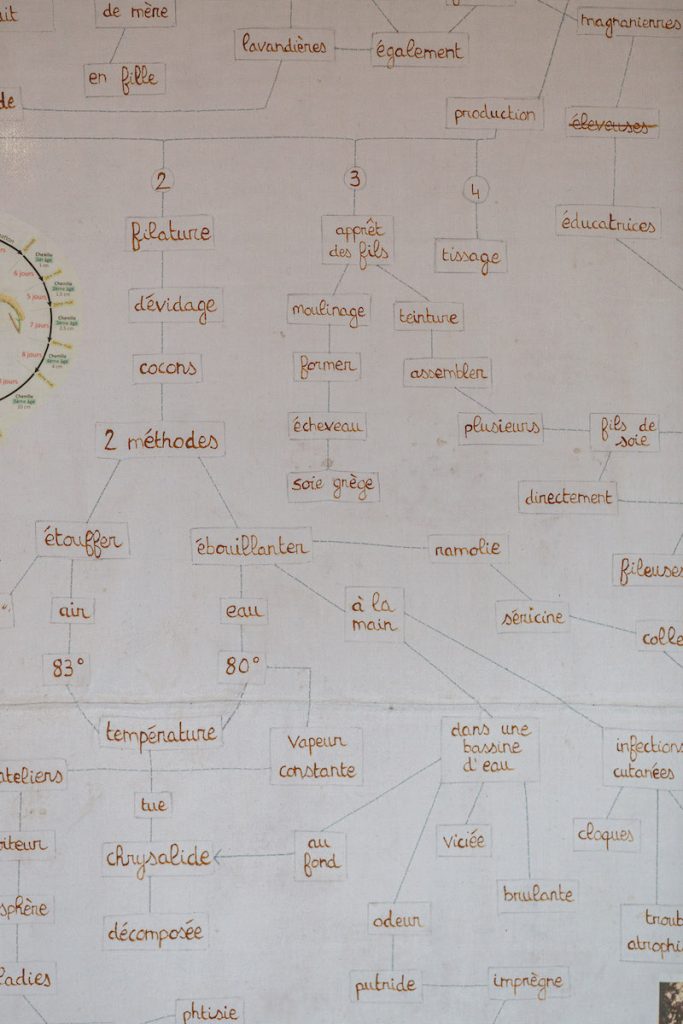 de mère
magnaniennes
lavandières
également
en fille
de
production
éleveuses
2
3
4
éducatrices
filature
apprêt
des fils
tissage
6 jours
5 jours
7 jours
8 jours
dévidage
moulinage
teinture
cocons
former
assembler
2 méthodes
écheveau
plusieurs
fils de
soie
soie grège
directement
étouffer
ébouillanter
ramolie
fileuses
air
eau
à la
main
séricine
colle
83°
80°
température
Vapeur
constante
dans une
bassine
d'eau
infections
cutanées
ateliers
tue
viciée
cloques
chrysalide
au
fond
brulante
sphère
décomposée
odeur
troub
atrophi
ladies
putride
imprègne
phtisie